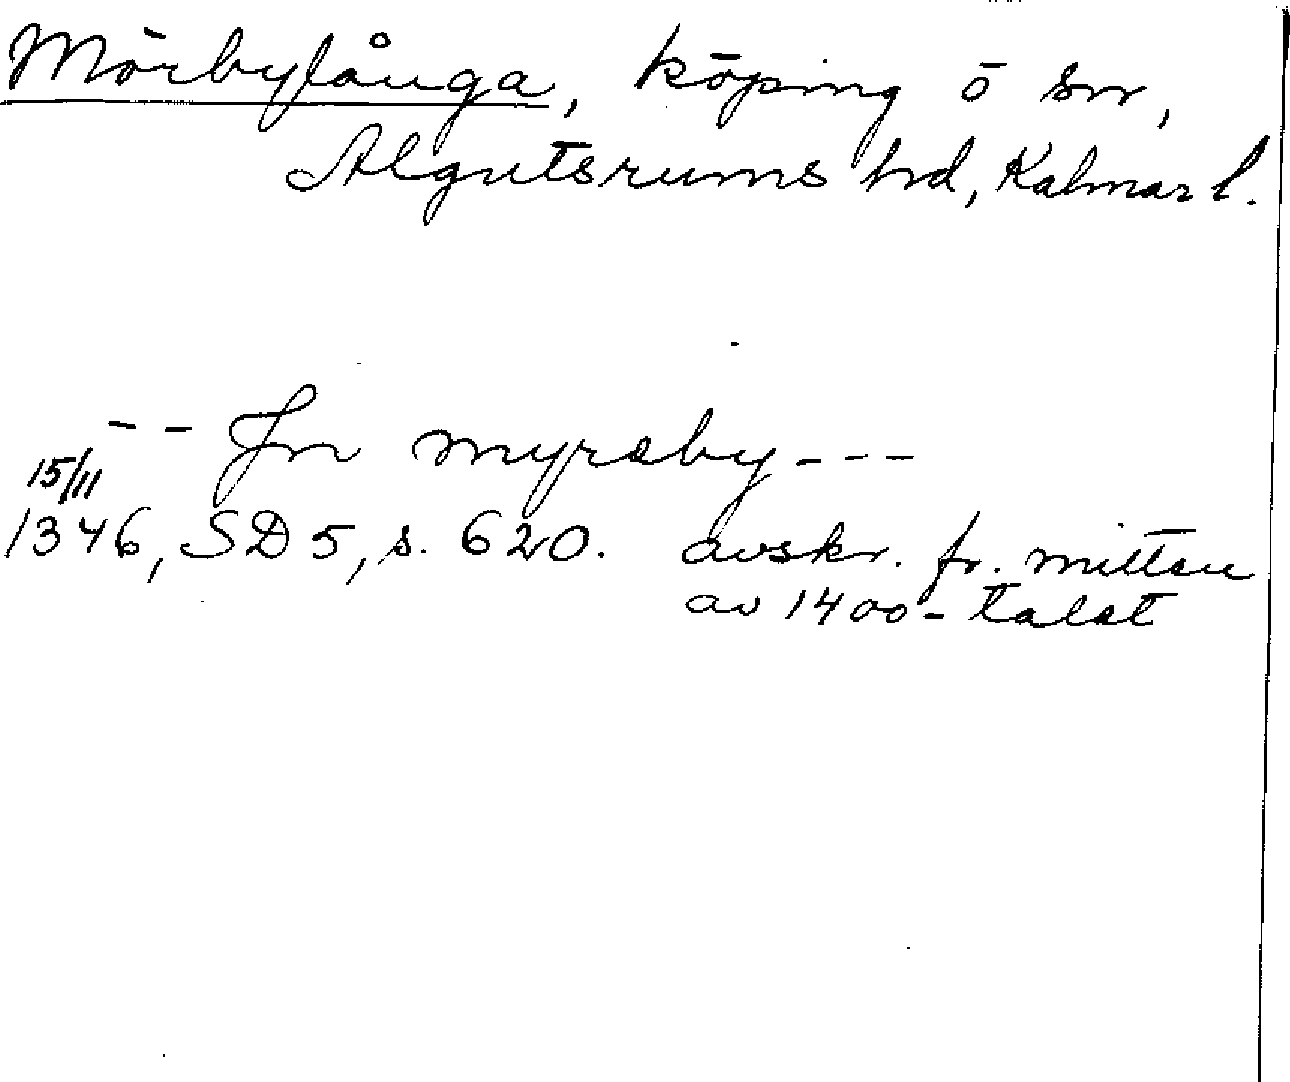 Mörbylånga, köping o sn,
Algutsrums hd, Kalmar l.
-- Jn myræby ---
15/11
1346, SD 5, s. 620. avskr. fr. mitten
av 1400-talet